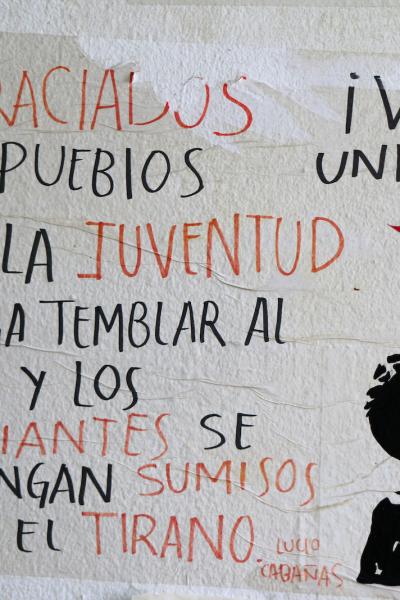 RACIADOS
PUEBLOS
LA JUVENTUD
GA TEMBLAR AL
Y LOS
IANTES SE
NGAN SUMISOS
EL TIRANO.
LUCIO
CABAÑAS
¡V
UNI